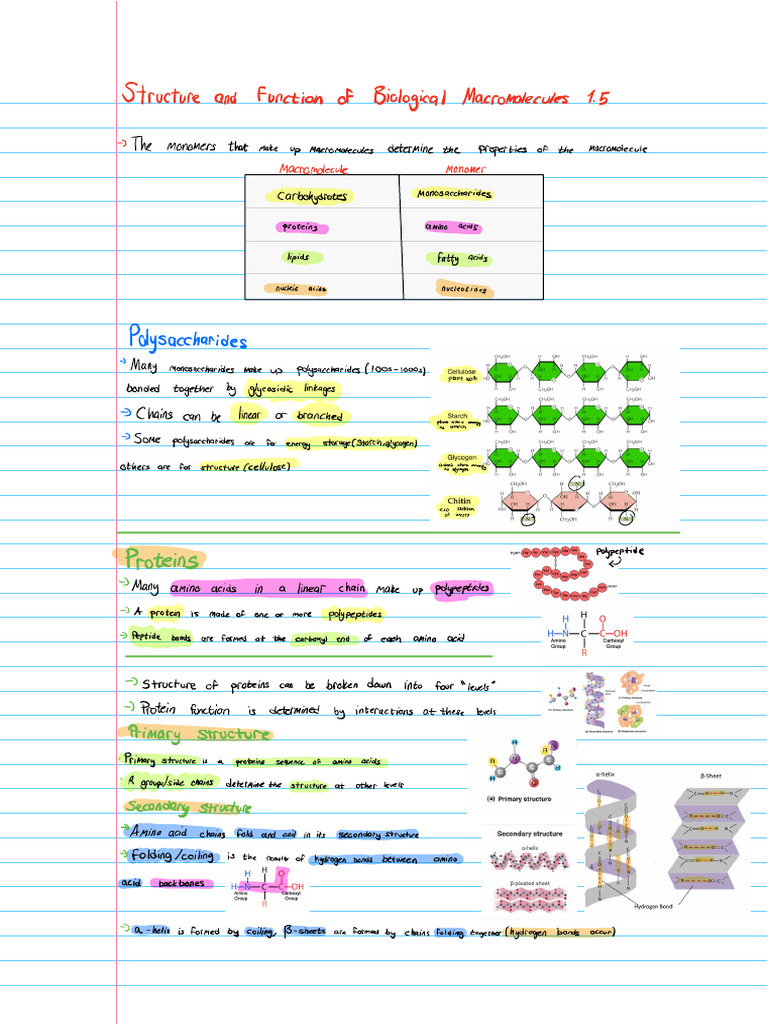 Structure and Function of Biological Macromolecules 1.5
→ The monomers that make up macromolecules determine the properties of the macromolecule
Macromolecule Monomer
Carbohydrates Monosaccharides
proteins amino acids
lipids fatty acids
nucleic acids nucleotides
Polysaccharides
→ Many monosaccharides make up polysaccharides (100s-1000s)
bonded together by glycosidic linkages
→ Chains can be linear or branched
→ Some polysaccharides are for energy storage (starch, glycogen)
others are for structure (cellulose)
Cellulose
plant walls
Starch
plants store energy
as starch
Glycogen
animals store energy
as glycogen
Chitin
exo skeleton
of insects
Proteins
→ Many amino acids in a linear chain make up polypeptides
→ A protein is made of one or more polypeptides
→ Peptide bonds are formed at the carboxyl end of each amino acid
polypeptide
H H O
H-N-C-C-OH
Amino Group
R
Carboxyl Group
→ Structure of proteins can be broken down into four "levels"
→ Protein function is determined by interactions at these levels
Primary Structure
Primary structure is a proteins sequence of amino acids
· R group/side chains determine the structure at other levels
(a) Primary structure
Secondary Structure
→ Amino acid chains fold and coil in its secondary structure
→ Folding/coiling is the result of hydrogen bonds between amino
acid backbones
H H O
H-N-C-C-OH
Amino Group
R
Carboxyl Group
Secondary structure
α-helix
β-pleated sheet
α-helix
β-Sheet
Hydrogen Bond
→ α-helix is formed by coiling, β-sheets are formed by chains folding together (hydrogen bonds occur)